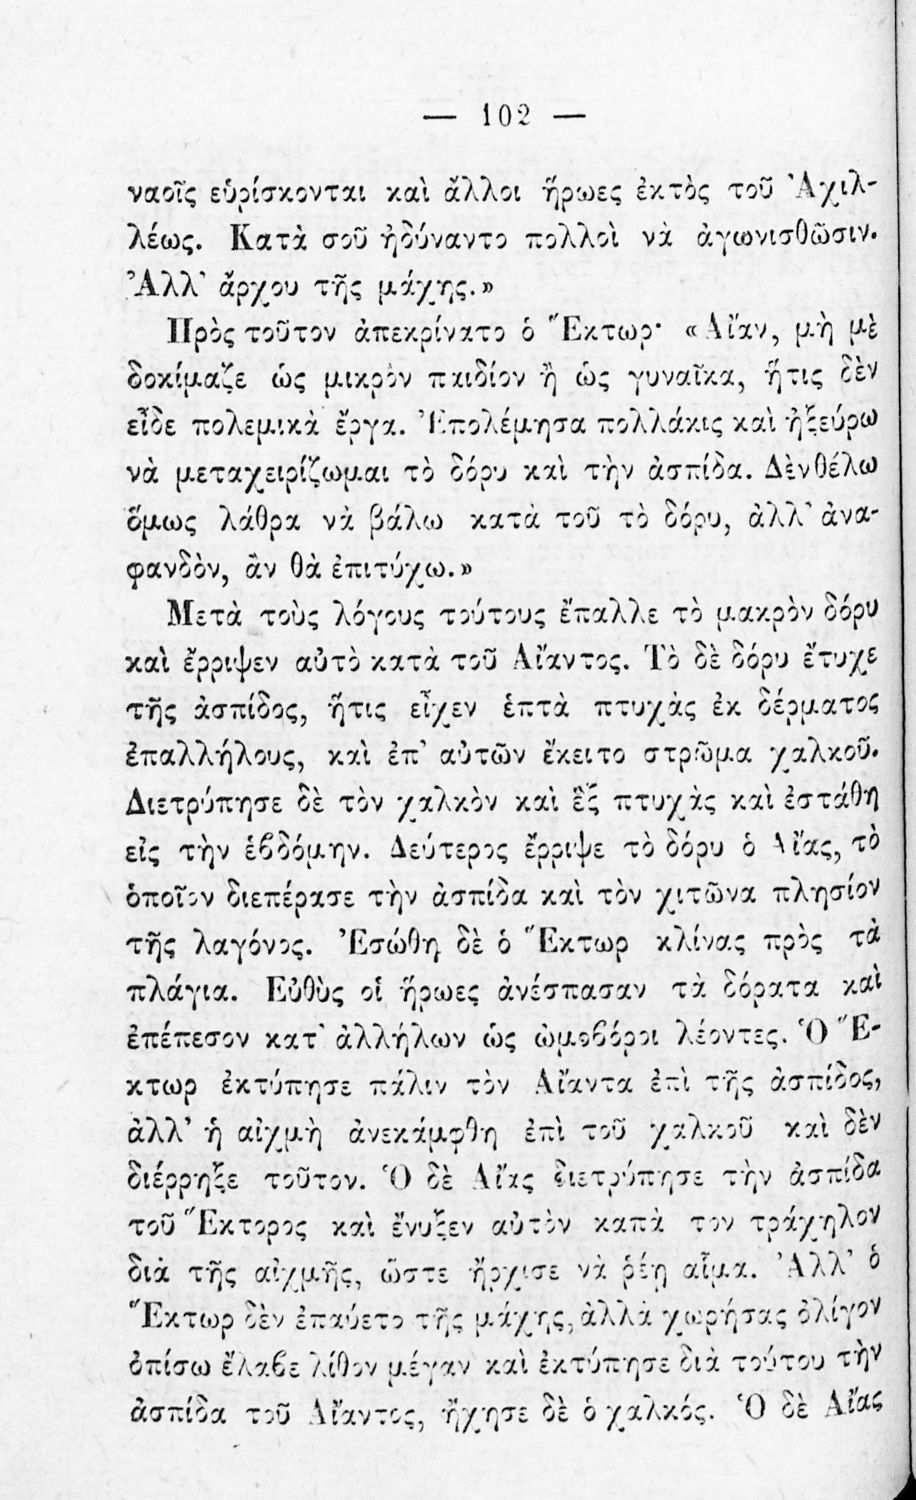 — 102 —
ναοῖς εὑρίσκονται καὶ ἄλλοι ἥρωες ἐκτὸς τοῦ Ἀχιλ-
λέως. Κατὰ σοῦ ἠδύναντο πολλοὶ νὰ ἀγωνισθῶσιν.
Ἀλλ' ἄρχου τῆς μάχης.»
Πρὸς τοῦτον ἀπεκρίνατο ὁ Ἕκτωρ· «Αἶαν, μὴ μὲ
δοκίμαζε ὡς μικρὸν παιδίον ἢ ὡς γυναῖκα, ἥτις δὲν
εἶδε πολεμικὰ ἔργα. Ἐπολέμησα πολλάκις καὶ ἠξεύρω
νὰ μεταχειρίζωμαι τὸ δόρυ καὶ τὴν ἀσπίδα. Δὲν θέλω
ὅμως λάθρα νὰ βάλω κατὰ τοῦ τὸ δόρυ, ἀλλ' ἀνα-
φανδὸν, ἂν θὰ ἐπιτύχω.»
Μετὰ τοὺς λόγους τούτους ἔπαλλε τὸ μακρὸν δόρυ
καὶ ἔρριψεν αὐτὸ κατὰ τοῦ Αἴαντος. Τὸ δὲ δόρυ ἔτυχε
τῆς ἀσπίδος, ἥτις εἶχεν ἑπτὰ πτυχὰς ἐκ δέρματος
ἐπαλλήλους, καὶ ἐπ' αὐτῶν ἔκειτο στρῶμα χαλκοῦ.
Διετρύπησε δὲ τὸν χαλκὸν καὶ ἓξ πτυχὰς καὶ ἐστάθη
εἰς τὴν ἑβδόμην. Δεύτερος ἔρριψε τὸ δόρυ ὁ Αἴας, τὸ
ὁποῖον διεπέρασε τὴν ἀσπίδα καὶ τὸν χιτῶνα πλησίον
τῆς λαγόνος. Ἐσώθη δὲ ὁ Ἕκτωρ κλίνας πρὸς τὰ
πλάγια. Εὐθὺς οἱ ἥρωες ἀνέσπασαν τὰ δόρατα καὶ
ἐπέπεσον κατ' ἀλλήλων ὡς ὠμοβόροι λέοντες. Ὁ Ἕ-
κτωρ ἐκτύπησε πάλιν τὸν Αἴαντα ἐπὶ τῆς ἀσπίδος,
ἀλλ' ἡ αἰχμὴ ἀνεκάμφθη ἐπὶ τοῦ χαλκοῦ καὶ δὲν
διέρρηξε τοῦτον. Ὁ δὲ Αἴας διετρύπησε τὴν ἀσπίδα
τοῦ Ἕκτορος καὶ ἔνυξεν αὐτὸν καπὰ τον τράχηλον
διὰ τῆς αἰχμῆς, ὥστε ἤρχισε νὰ ῥέῃ αἷμα. Ἀλλ' ὁ
Ἕκτωρ δὲν ἐπαύετο τῆς μάχης, ἀλλὰ χωρήσας ὀλίγον
ὀπίσω ἔλαβε λίθον μέγαν καὶ ἐκτύπησε διὰ τούτου τὴν
ἀσπίδα τοῦ Αἴαντος, ἤχησε δὲ ὁ χαλκός. Ὁ δὲ Αἴας